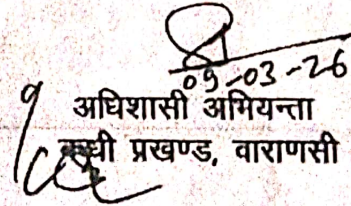 09-03-26
अधिशासी अभियन्ता
प्रखण्ड, वाराणसी